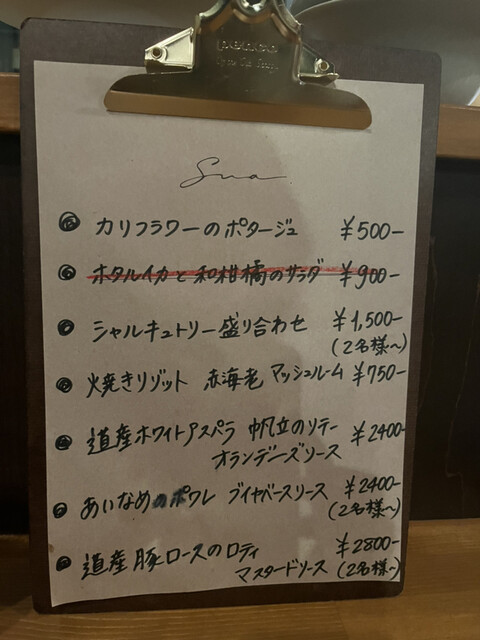 Sua
カリフラワーのポタージュ ¥500-
ホタルイカと和柑橘のサラダ ¥900-
シャルキュトリー盛り合わせ ¥1,500-
(2名様〜)
焼きリゾット 赤海老 マッシュルーム ¥750-
道産ホワイトアスパラ 帆立のソテー ¥2400-
オランデーズソース
あいなめのポワレ ブイヤベースソース ¥2400-
(2名様〜)
道産豚ロースのロティ ¥2800-
マスタードソース (2名様〜)